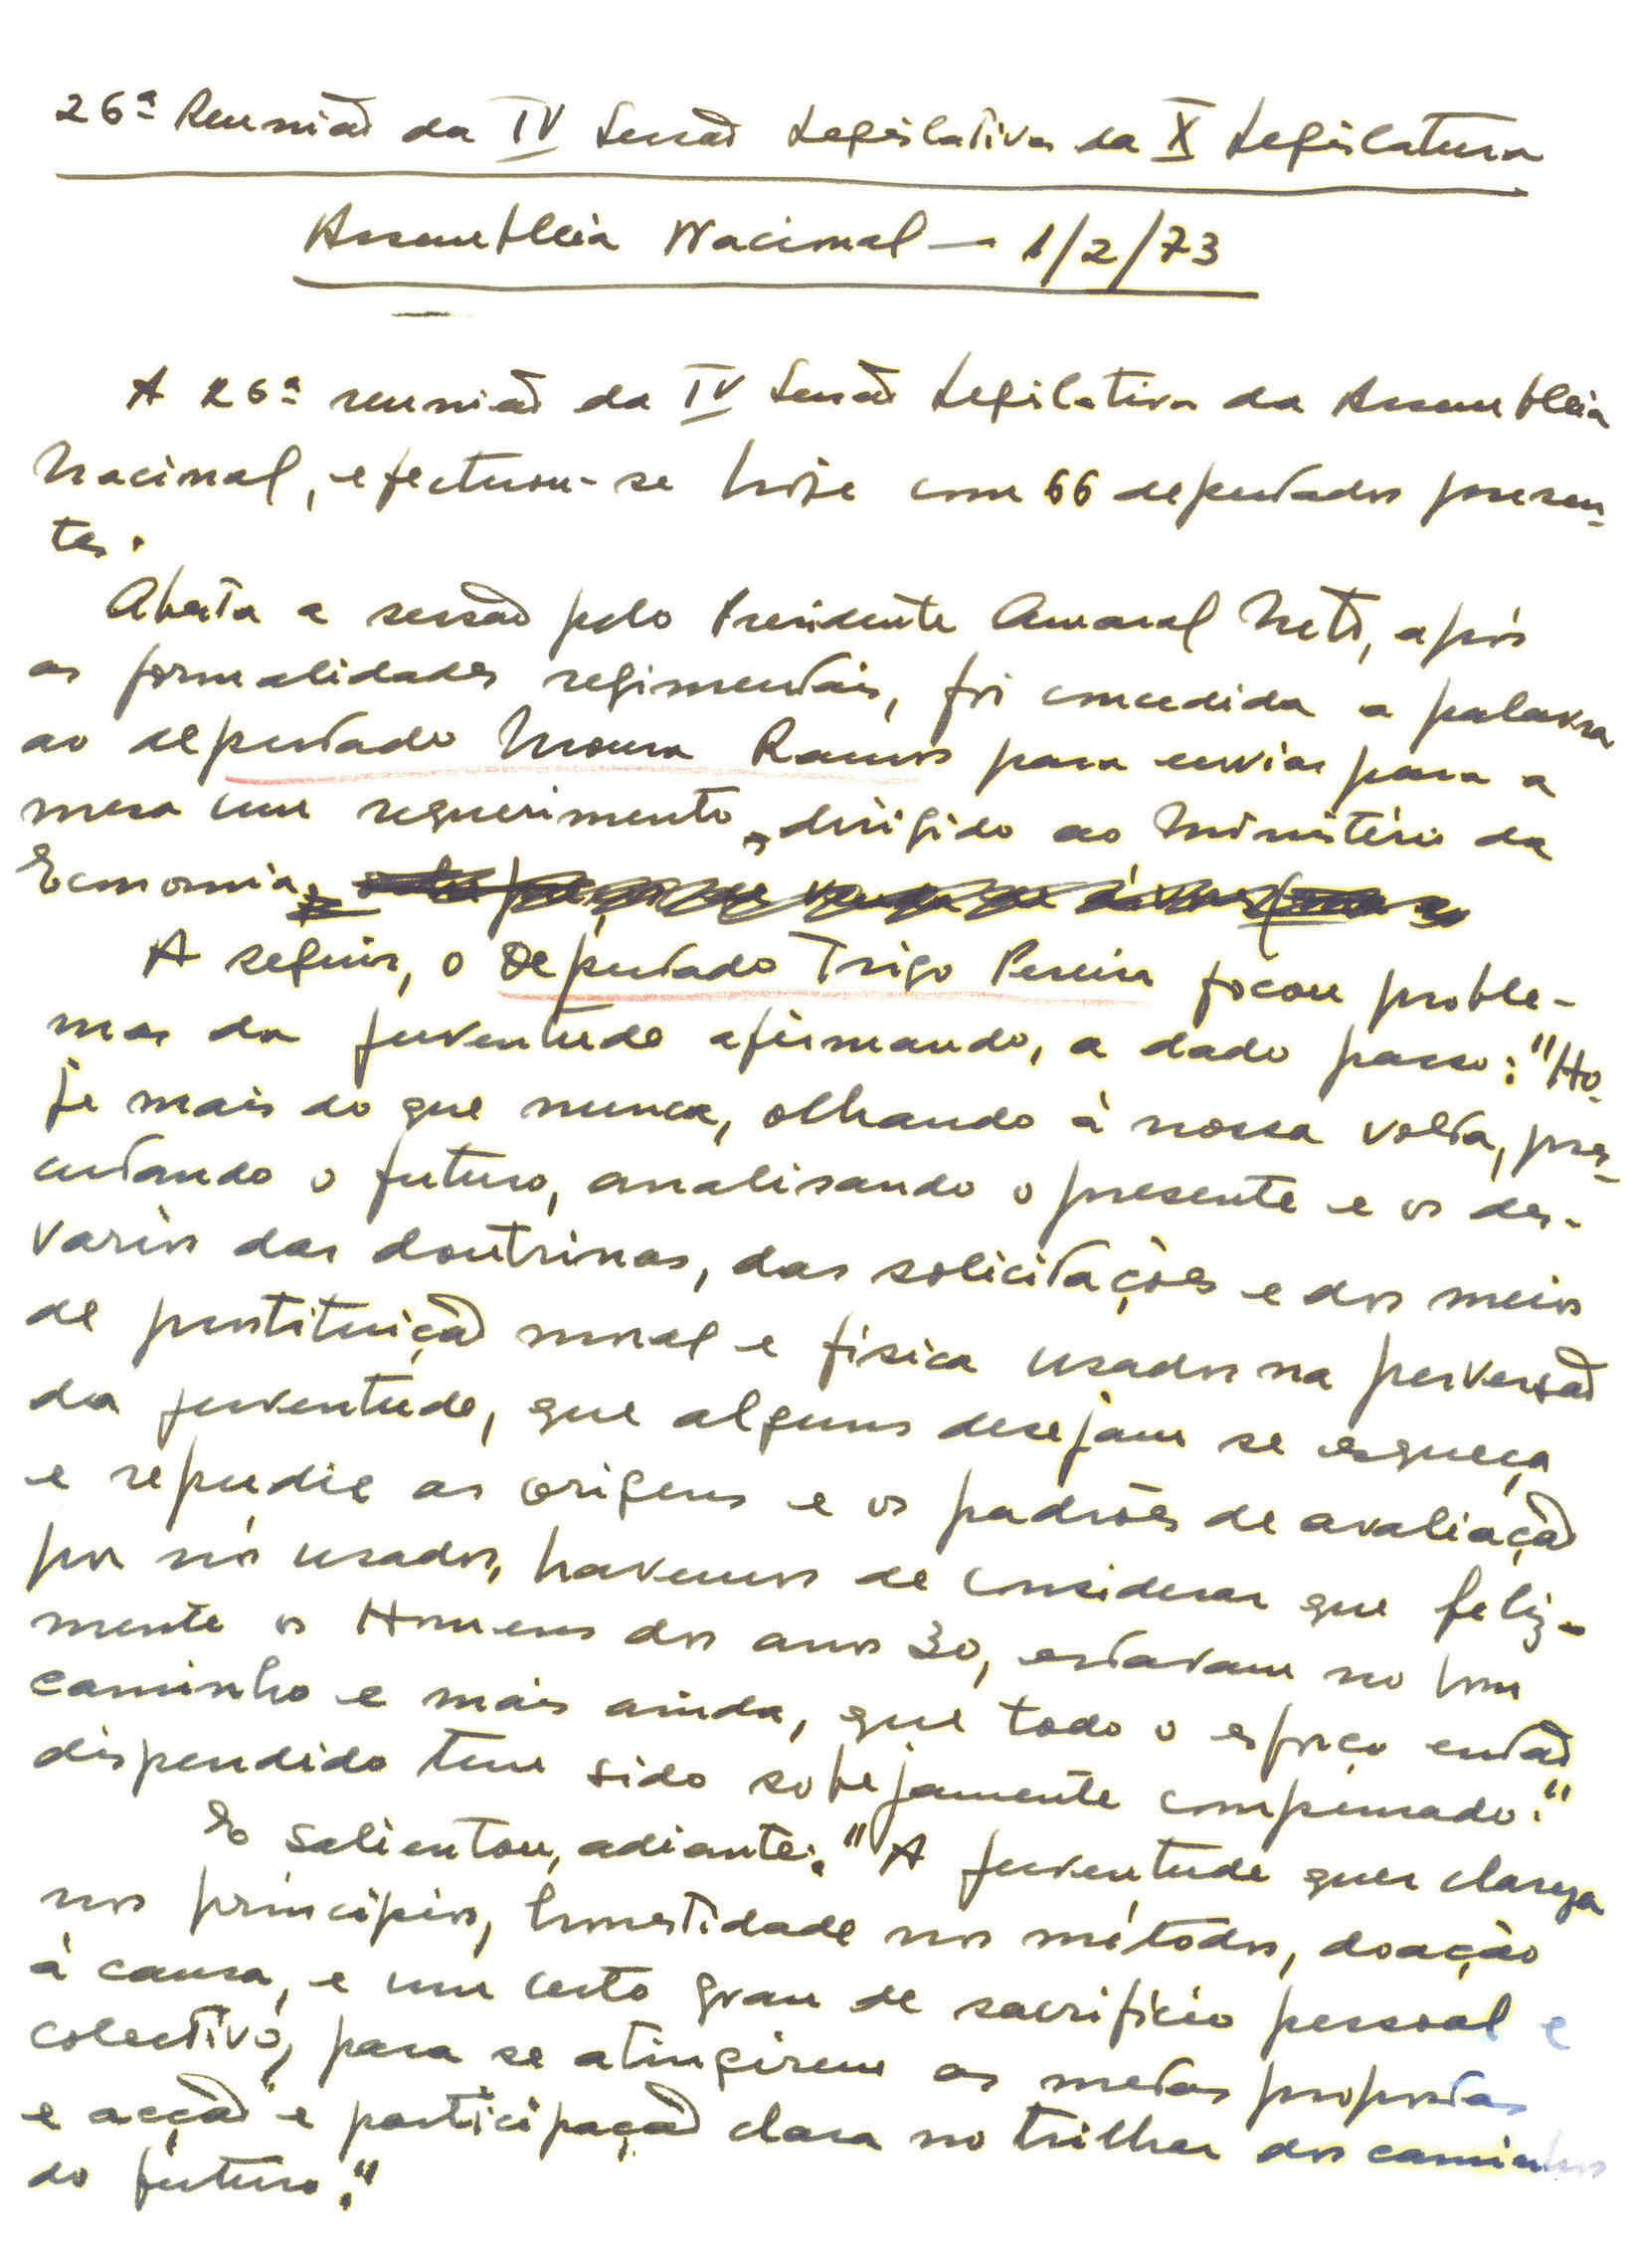 26ª Reunião da IV Sessão Legislativa da X Legislatura
Assembleia Nacional — 1/2/73
A 26ª reunião da IV Sessão Legislativa da Assembleia
Nacional, efectuou-se hoje com 66 deputados presen-
tes.
Aberta a sessão pelo Presidente Amaral Neto, após
as formalidades regimentais, foi concedida a palavra
ao deputado Moura Ramos para enviar para a
mesa um requerimento, dirigido ao Ministério da
Economia.
A seguir, o Deputado Trigo Pereira focou proble-
mas da juventude afirmando, a dado passo: "Ho-
je mais do que nunca, olhando à nossa volta, pres-
cutando o futuro, analisando o presente e os des-
varios das doutrinas, das solicitações e dos meios
de prostituição moral e física usados na perversão
da juventude, que alguns desejam se esqueça
e repudie as origens e os padrões de avaliação
por nós usados, havemos de considerar que feliz-
mente os Homens dos anos 30, estavam no bom
caminho e mais ainda, que todo o esforço então
dispendido tem sido sobejamente compensado."
E salientou, adiante: "A juventude quer clareza
nos princípios, honestidade nos métodos, doação
à causa, e um certo grau de sacrifício pessoal e
colectivo, para se atingirem as metas propostas
e acção e participação clara no trilhar dos caminhos
do futuro."